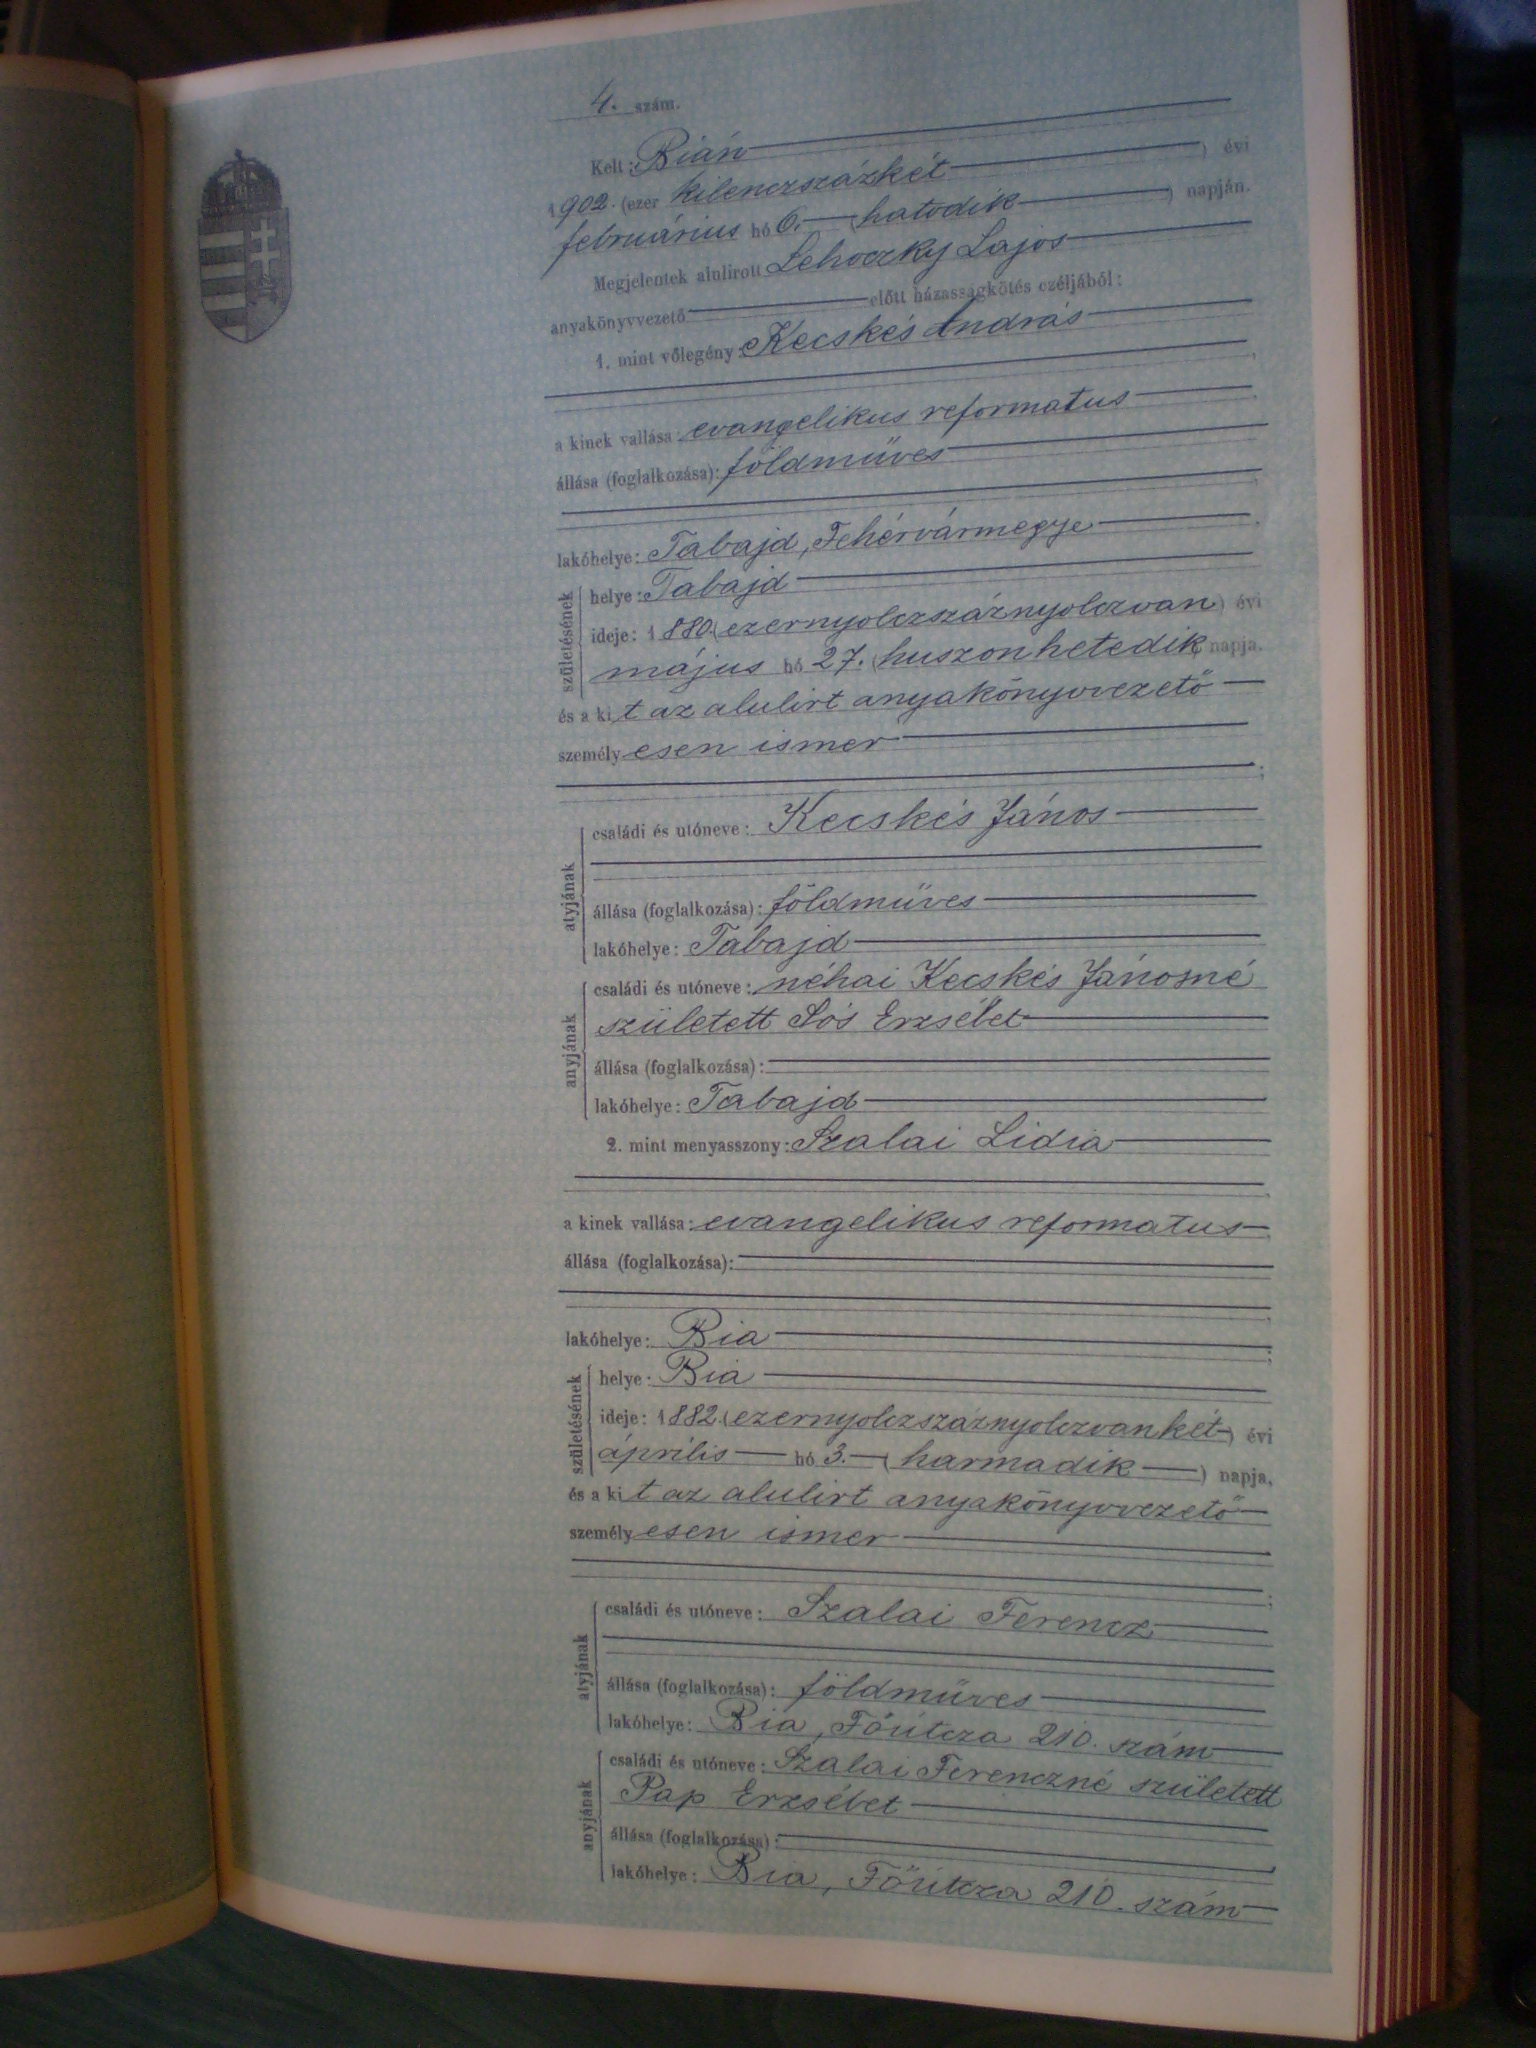 4. szám.
Kelt: Bián
1902. (ezer kilenczszázkét ) évi
február​ius hó 6. (hatodik ) napján.
Megjelentek alulirott Lehoczky Lajos
anyakönyvvezető előtt házasságkötés czéljából:
1. mint vőlegény: Kecskés András
a kinek vallása: evangelikus reformatus
állása (foglalkozása): földmüves
lakóhelye: Tabajd, Fehérvármegye
születésének
helye: Tabajd
ideje: 1880. (ezernyolczszáznyolczvan) évi
május hó 27. (huszonhetedik) napja.
és a kit az alulirt anyakönyvvezető
személyesen ismer
atyjának
családi és utóneve: Kecskés János
állása (foglalkozása): földmüves
lakóhelye: Tabajd
anyjának
családi és utóneve: néhai Kecskés Jánosné
született Sós Erzsébet
állása (foglalkozása):
lakóhelye: Tabajd
2. mint menyasszony: Szalai Lidia
a kinek vallása: evangelikus reformatus
állása (foglalkozása):
lakóhelye: Bia
születésének
helye: Bia
ideje: 1882. (ezernyolczszáznyolczvankét) évi
április hó 3. (harmadik) napja,
és a kit az alulirt anyakönyvvezető
személyesen ismer
atyjának
családi és utóneve: Szalai Ferencz
állása (foglalkozása): földmüves
lakóhelye: Bia, Főútcza 210. szám
anyjának
családi és utóneve: Szalai Ferenczné született
Pap Erzsébet
állása (foglalkozása):
lakóhelye: Bia, Főútcza 210. szám